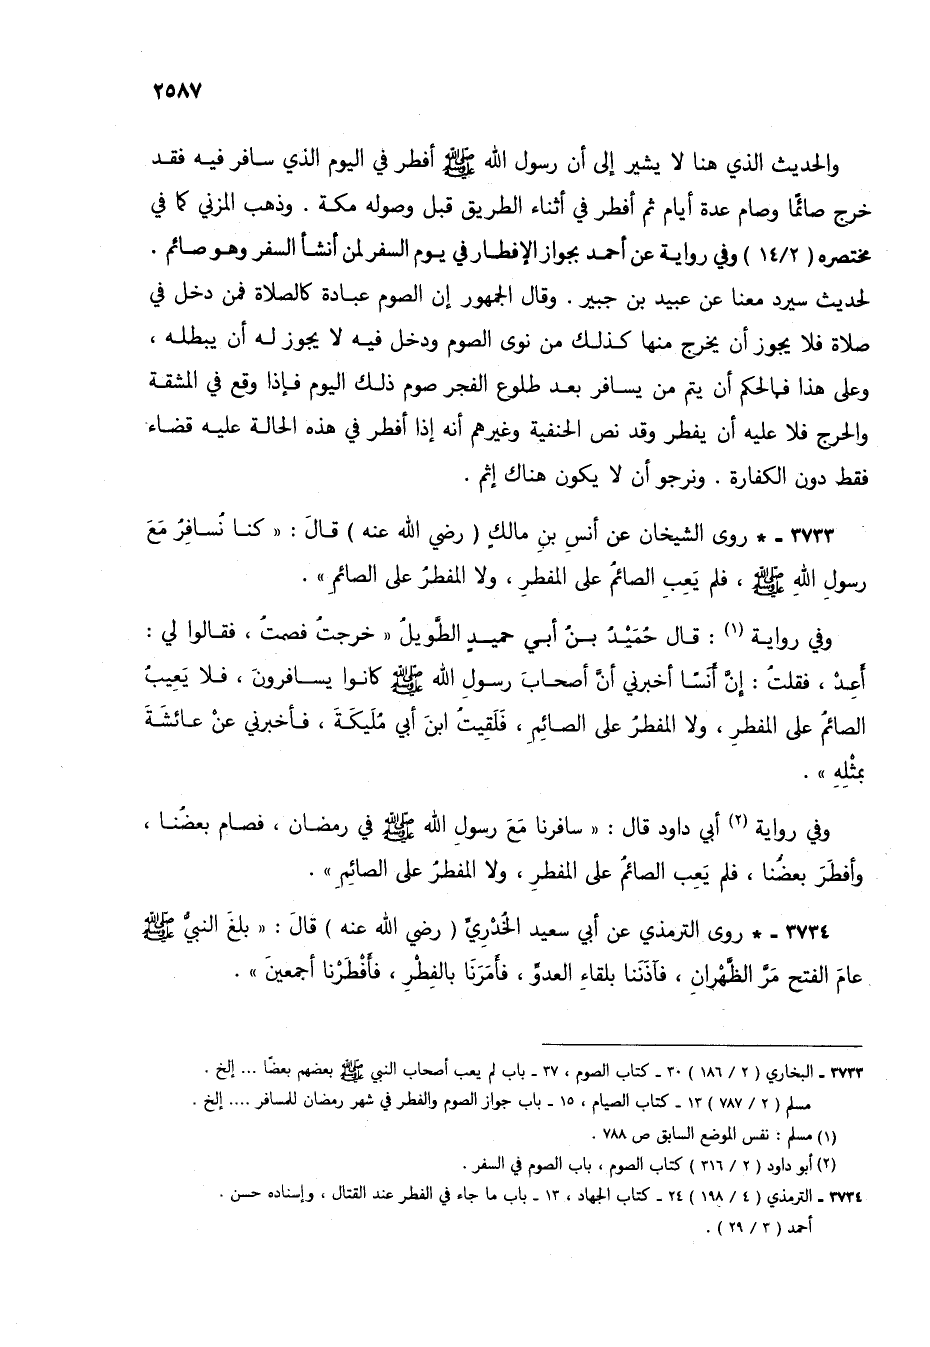 ٢٥٨٧
والحديث الذي هنا لا يشير إلى أن رسول الله ﷺ أفطر في اليوم الذي سافر فيه فقد
خرج صائمًا وصام عدة أيام ثم أفطر في أثناء الطريق قبل وصوله مكة . وذهب المزني كما في
مختصره ( ١٤/٢ ) وفي رواية عن أحمد بجواز الإفطار في يوم السفر لمن أنشأ السفر وهو صائم .
لحديث سيرد معنا عن عبيد بن جبير . وقال الجمهور إن الصوم عبادة كالصلاة فمن دخل في
صلاة فلا يجوز أن يخرج منها كذلك من نوى الصوم ودخل فيه لا يجوز له أن يبطله ،
وعلى هذا فالحكم أن يتم من يسافر بعد طلوع الفجر صوم ذلك اليوم فإذا وقع في المشقة
والحرج فلا عليه أن يفطر وقد نص الحنفية وغيرهم أنه إذا أفطر في هذه الحالة عليه قضاء
فقط دون الكفارة . ونرجو أن لا يكون هناك إثم .
٣٧٣٣ - * روى الشيخان عن أنسِ بنِ مالكٍ ( رضي الله عنه ) قالَ : « كنا نُسافرُ مَعَ
رسولِ اللهِ ﷺ ، فلم يَعِبِ الصائمُ على المفطرِ ، ولا المفطرُ على الصائمِ » .
وفي رواية (١) : قال حُمَيْدُ بنُ أبي حميدٍ الطَّويلُ « خرجتُ فصمتُ ، فقالوا لي :
أَعِدْ ، فقلتُ : إنَّ أَنَسًا أخبرني أنَّ أصحابَ رسولِ الله ﷺ كانوا يسافرونَ ، فلا يَعِيبُ
الصائمُ على المفطرِ ، ولا المفطرُ على الصائِمِ ، فَلَقِيتُ ابنَ أبي مُلَيكَةَ ، فأخبرني عنْ عائشَةَ
بمثْلِهِ » .
وفي رواية (٢) أبي داود قال : « سافرنا مَعَ رسولِ الله ﷺ في رمضان ، فصام بعضُنا ،
وأفطَرَ بعضُنا ، فلم يَعِب الصائمُ على المفطرِ ، ولا المفطرُ على الصائِمِ » .
٣٧٣٤ - * روى الترمذي عن أبي سعيد الخُدْرِيِّ ( رضي الله عنه ) قالَ : « بلغَ النبيُّ ﷺ
عامَ الفتح مَرَّ الظَّهْرانِ ، فآذَنَنا بلقاءِ العدوِّ ، فأَمَرَنَا بالفِطْرِ ، فأَفْطَرْنا أجمعينَ » .
٣٧٣٣ - البخاري ( ٢ / ١٨٦ ) ٣٠ - كتاب الصوم ، ٣٧ - باب لم يعب أصحاب النبي ﷺ بعضهم بعضًا ... إلخ .
مسلم ( ٢ / ٧٨٧ ) ١٣ - كتاب الصيام ، ١٥ - باب جواز الصوم والفطر في شهر رمضان للمسافر .... إلخ .
(١) مسلم : نفس الموضع السابق ص ٧٨٨ .
(٢) أبو داود ( ٢ / ٣١٦ ) كتاب الصوم ، باب الصوم في السفر .
٣٧٣٤ - الترمذي ( ٤ / ١٩٨ ) ٢٤ - كتاب الجهاد ، ١٣ - باب ما جاء في الفطر عند القتال ، وإسناده حسن .
أحمد ( ٣ / ٢٩ ) .